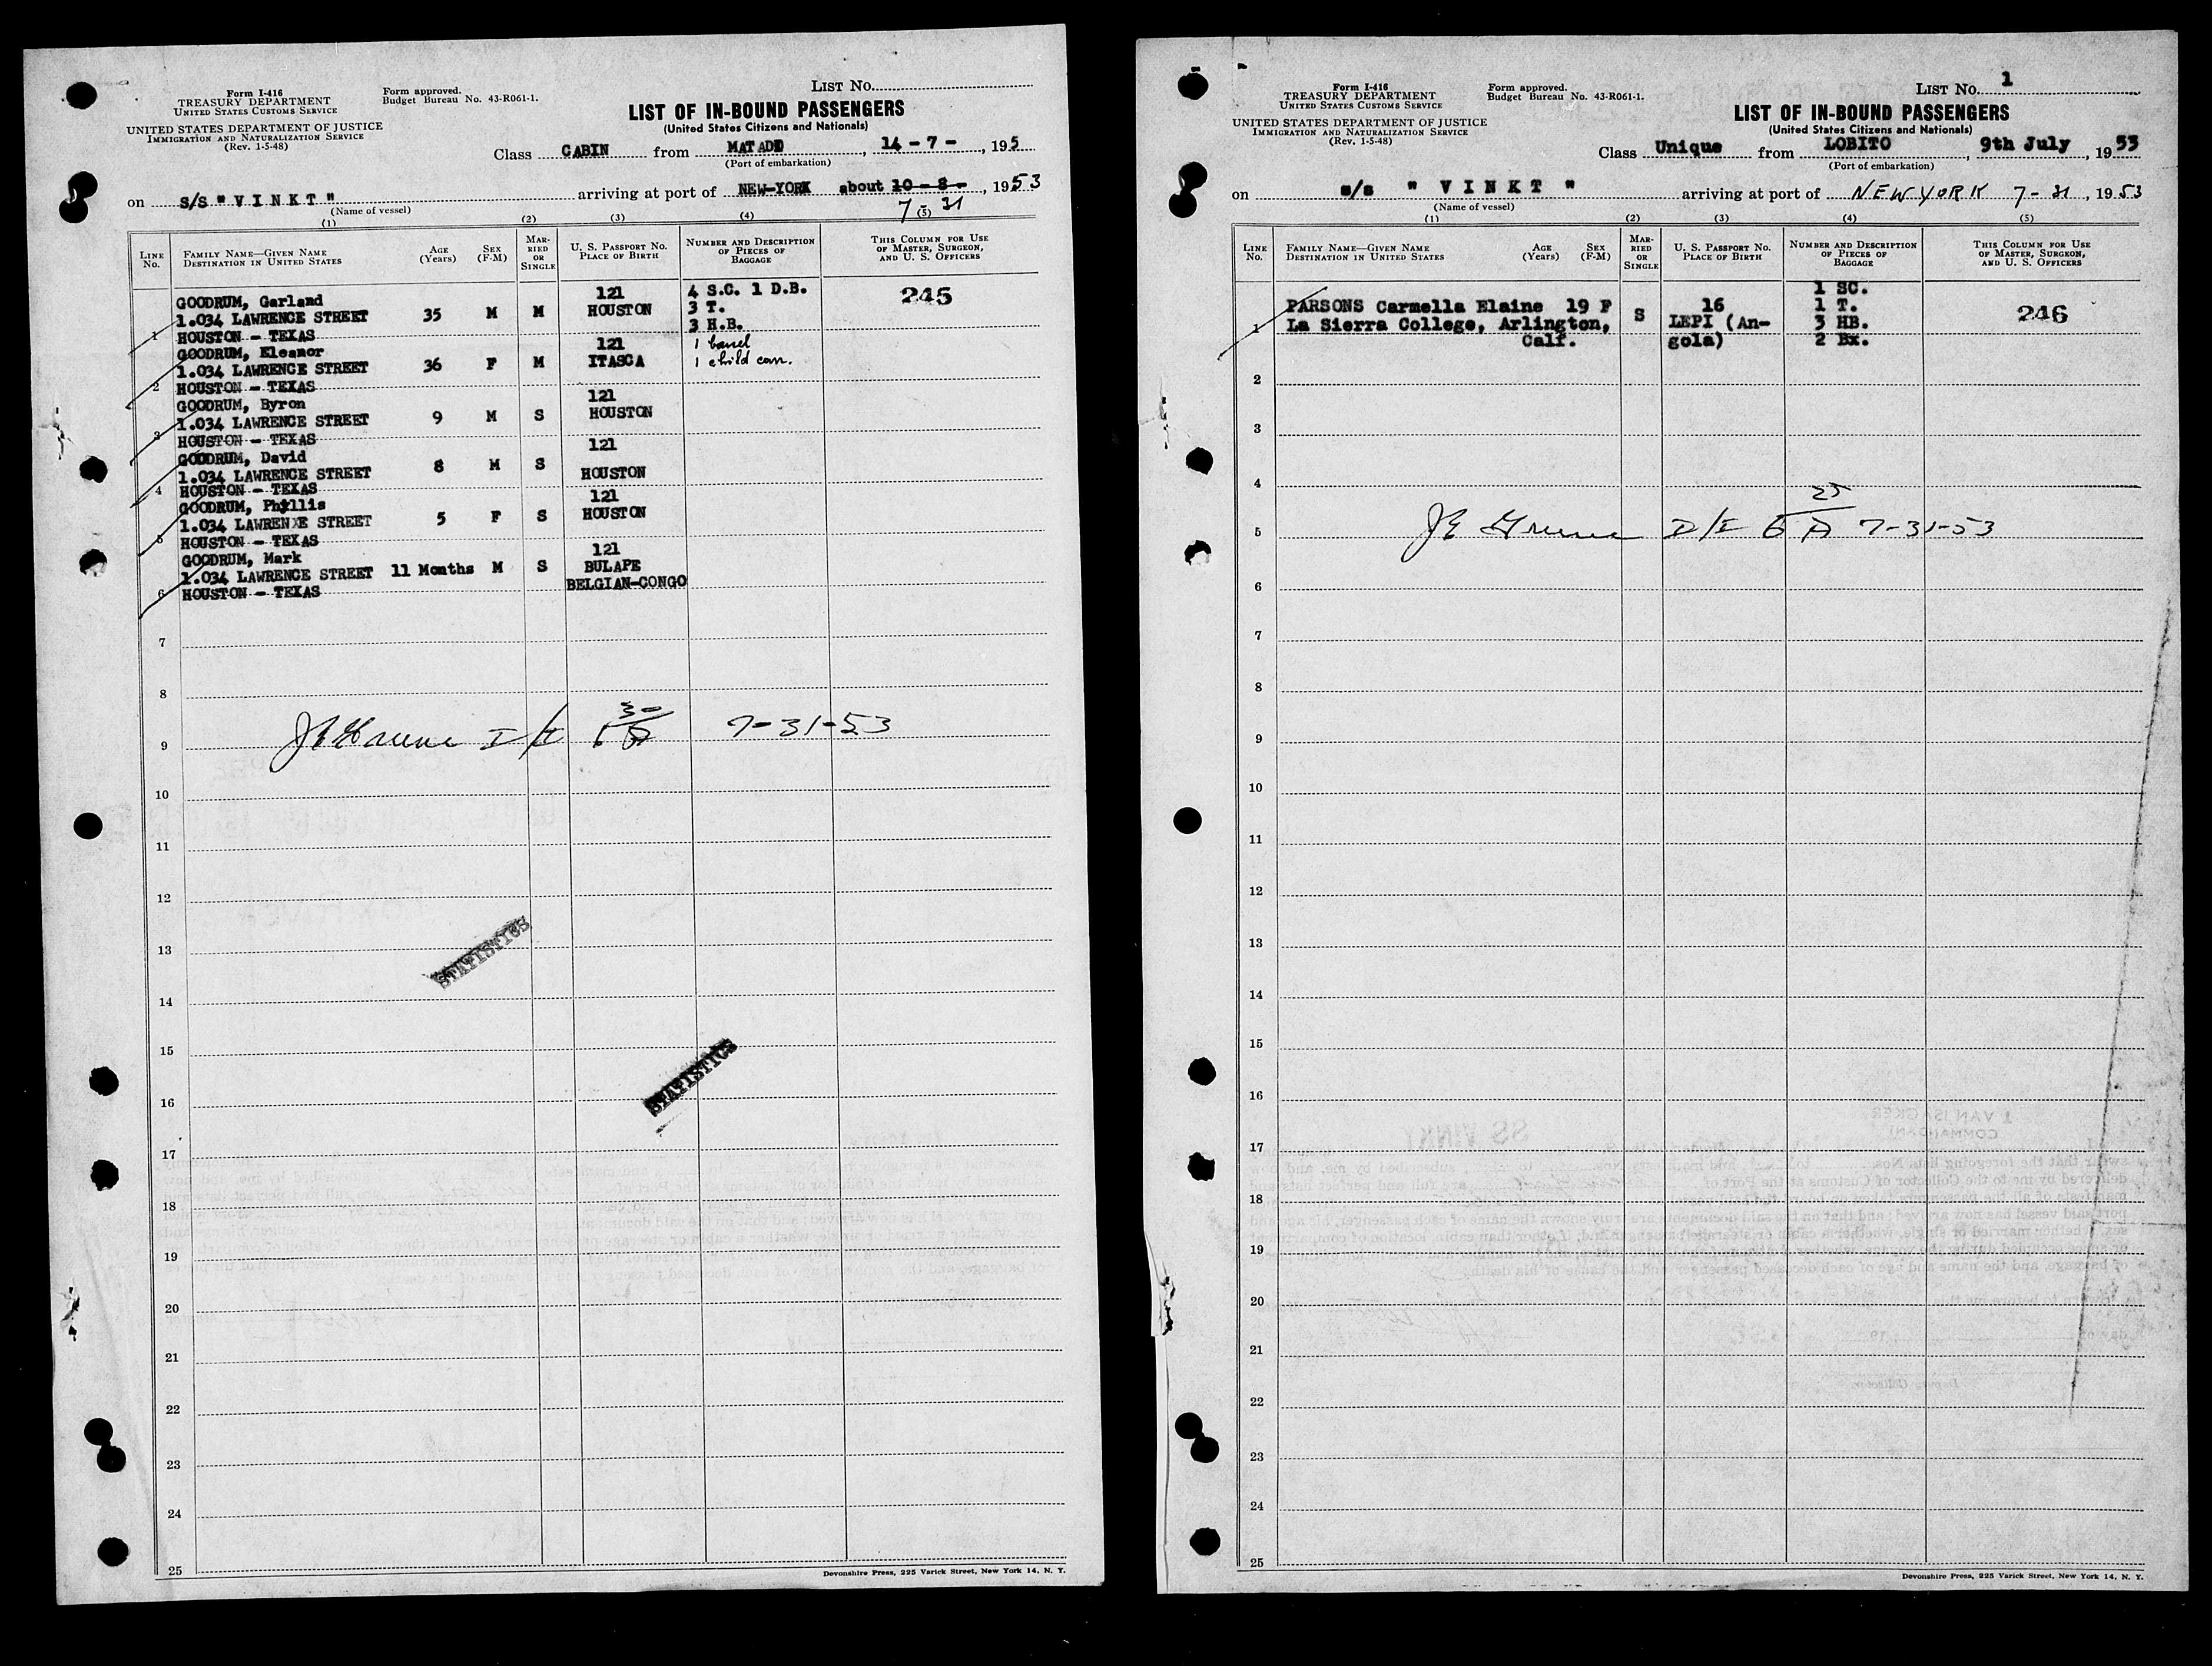 Form I-416
TREASURY DEPARTMENT
UNITED STATES CUSTOMS SERVICE
UNITED STATES DEPARTMENT OF JUSTICE
IMMIGRATION AND NATURALIZATION SERVICE
(Rev. 1-5-48)
Form approved.
Budget Bureau No. 43-R061-1.
LIST NO.
LIST OF IN-BOUND PASSENGERS
(United States Citizens and Nationals)
Class CABIN from MATADI, 14 - 7 -, 195
(Port of embarkation)
on S/S "VINKT" arriving at port of NEW-YORK about 10 - 8 -, 1953
7 - 31
(Name of vessel)
(1) (2) (3) (4) (5)
LINE No.
FAMILY NAME—GIVEN NAME
DESTINATION IN UNITED STATES
AGE (Years)
SEX (F-M)
MARRIED OR SINGLE
U. S. PASSPORT NO.
PLACE OF BIRTH
NUMBER AND DESCRIPTION OF PIECES OF BAGGAGE
THIS COLUMN FOR USE OF MASTER, SURGEON, AND U. S. OFFICERS
GOODRUM, Garland 121 4 S.C. 1 D.B. 245
1.034 LAWRENCE STREET 35 M M HOUSTON 3 T.
1 HOUSTON - TEXAS 3 H.B.
GOODRUM, Eleanor 121 1 barrel
1.034 LAWRENCE STREET 36 F M ITASCA 1 child carr.
2 HOUSTON - TEXAS
GOODRUM, Byron 121
1.034 LAWRENCE STREET 9 M S HOUSTON
3 HOUSTON - TEXAS
GOODRUM, David 121
1.034 LAWRENCE STREET 8 M S HOUSTON
4 HOUSTON - TEXAS
GOODRUM, Phyllis 121
1.034 LAWRENXE STREET 5 F S HOUSTON
5 HOUSTON - TEXAS
GOODRUM, Mark 121
1.034 LAWRENCE STREET 11 Months M S BULAPE
6 HOUSTON - TEXAS BELGIAN-CONGO
7
8
9 7-31-53
10
11
12
13
STATISTICS
14
15
STATISTICS
16
17
18
19
20
21
22
23
24
25
Devonshire Press, 225 Varick Street, New York 14, N. Y.
Form I-416
TREASURY DEPARTMENT
UNITED STATES CUSTOMS SERVICE
UNITED STATES DEPARTMENT OF JUSTICE
IMMIGRATION AND NATURALIZATION SERVICE
(Rev. 1-5-48)
Form approved.
Budget Bureau No. 43-R061-1.
LIST NO. 1
LIST OF IN-BOUND PASSENGERS
(United States Citizens and Nationals)
Class Unique from LOBITO, 9th July, 1953
(Port of embarkation)
on s/s " VINKT " arriving at port of NEW YORK 7-31, 1953
(Name of vessel)
(1) (2) (3) (4) (5)
LINE No.
FAMILY NAME—GIVEN NAME
DESTINATION IN UNITED STATES
AGE (Years)
SEX (F-M)
MARRIED OR SINGLE
U. S. PASSPORT NO.
PLACE OF BIRTH
NUMBER AND DESCRIPTION OF PIECES OF BAGGAGE
THIS COLUMN FOR USE OF MASTER, SURGEON, AND U. S. OFFICERS
1 SC.
PARSONS Carmella Elaine 19 F S 16 1 T. 246
1 La Sierra College, Arlington, LEPI (An- 3 HB.
Calf. gola) 2 Bx.
2
3
4
5 7-31-53
6
7
8
9
10
11
12
13
14
15
16
17
18
19
20
21
22
23
24
25
Devonshire Press, 225 Varick Street, New York 14, N. Y.